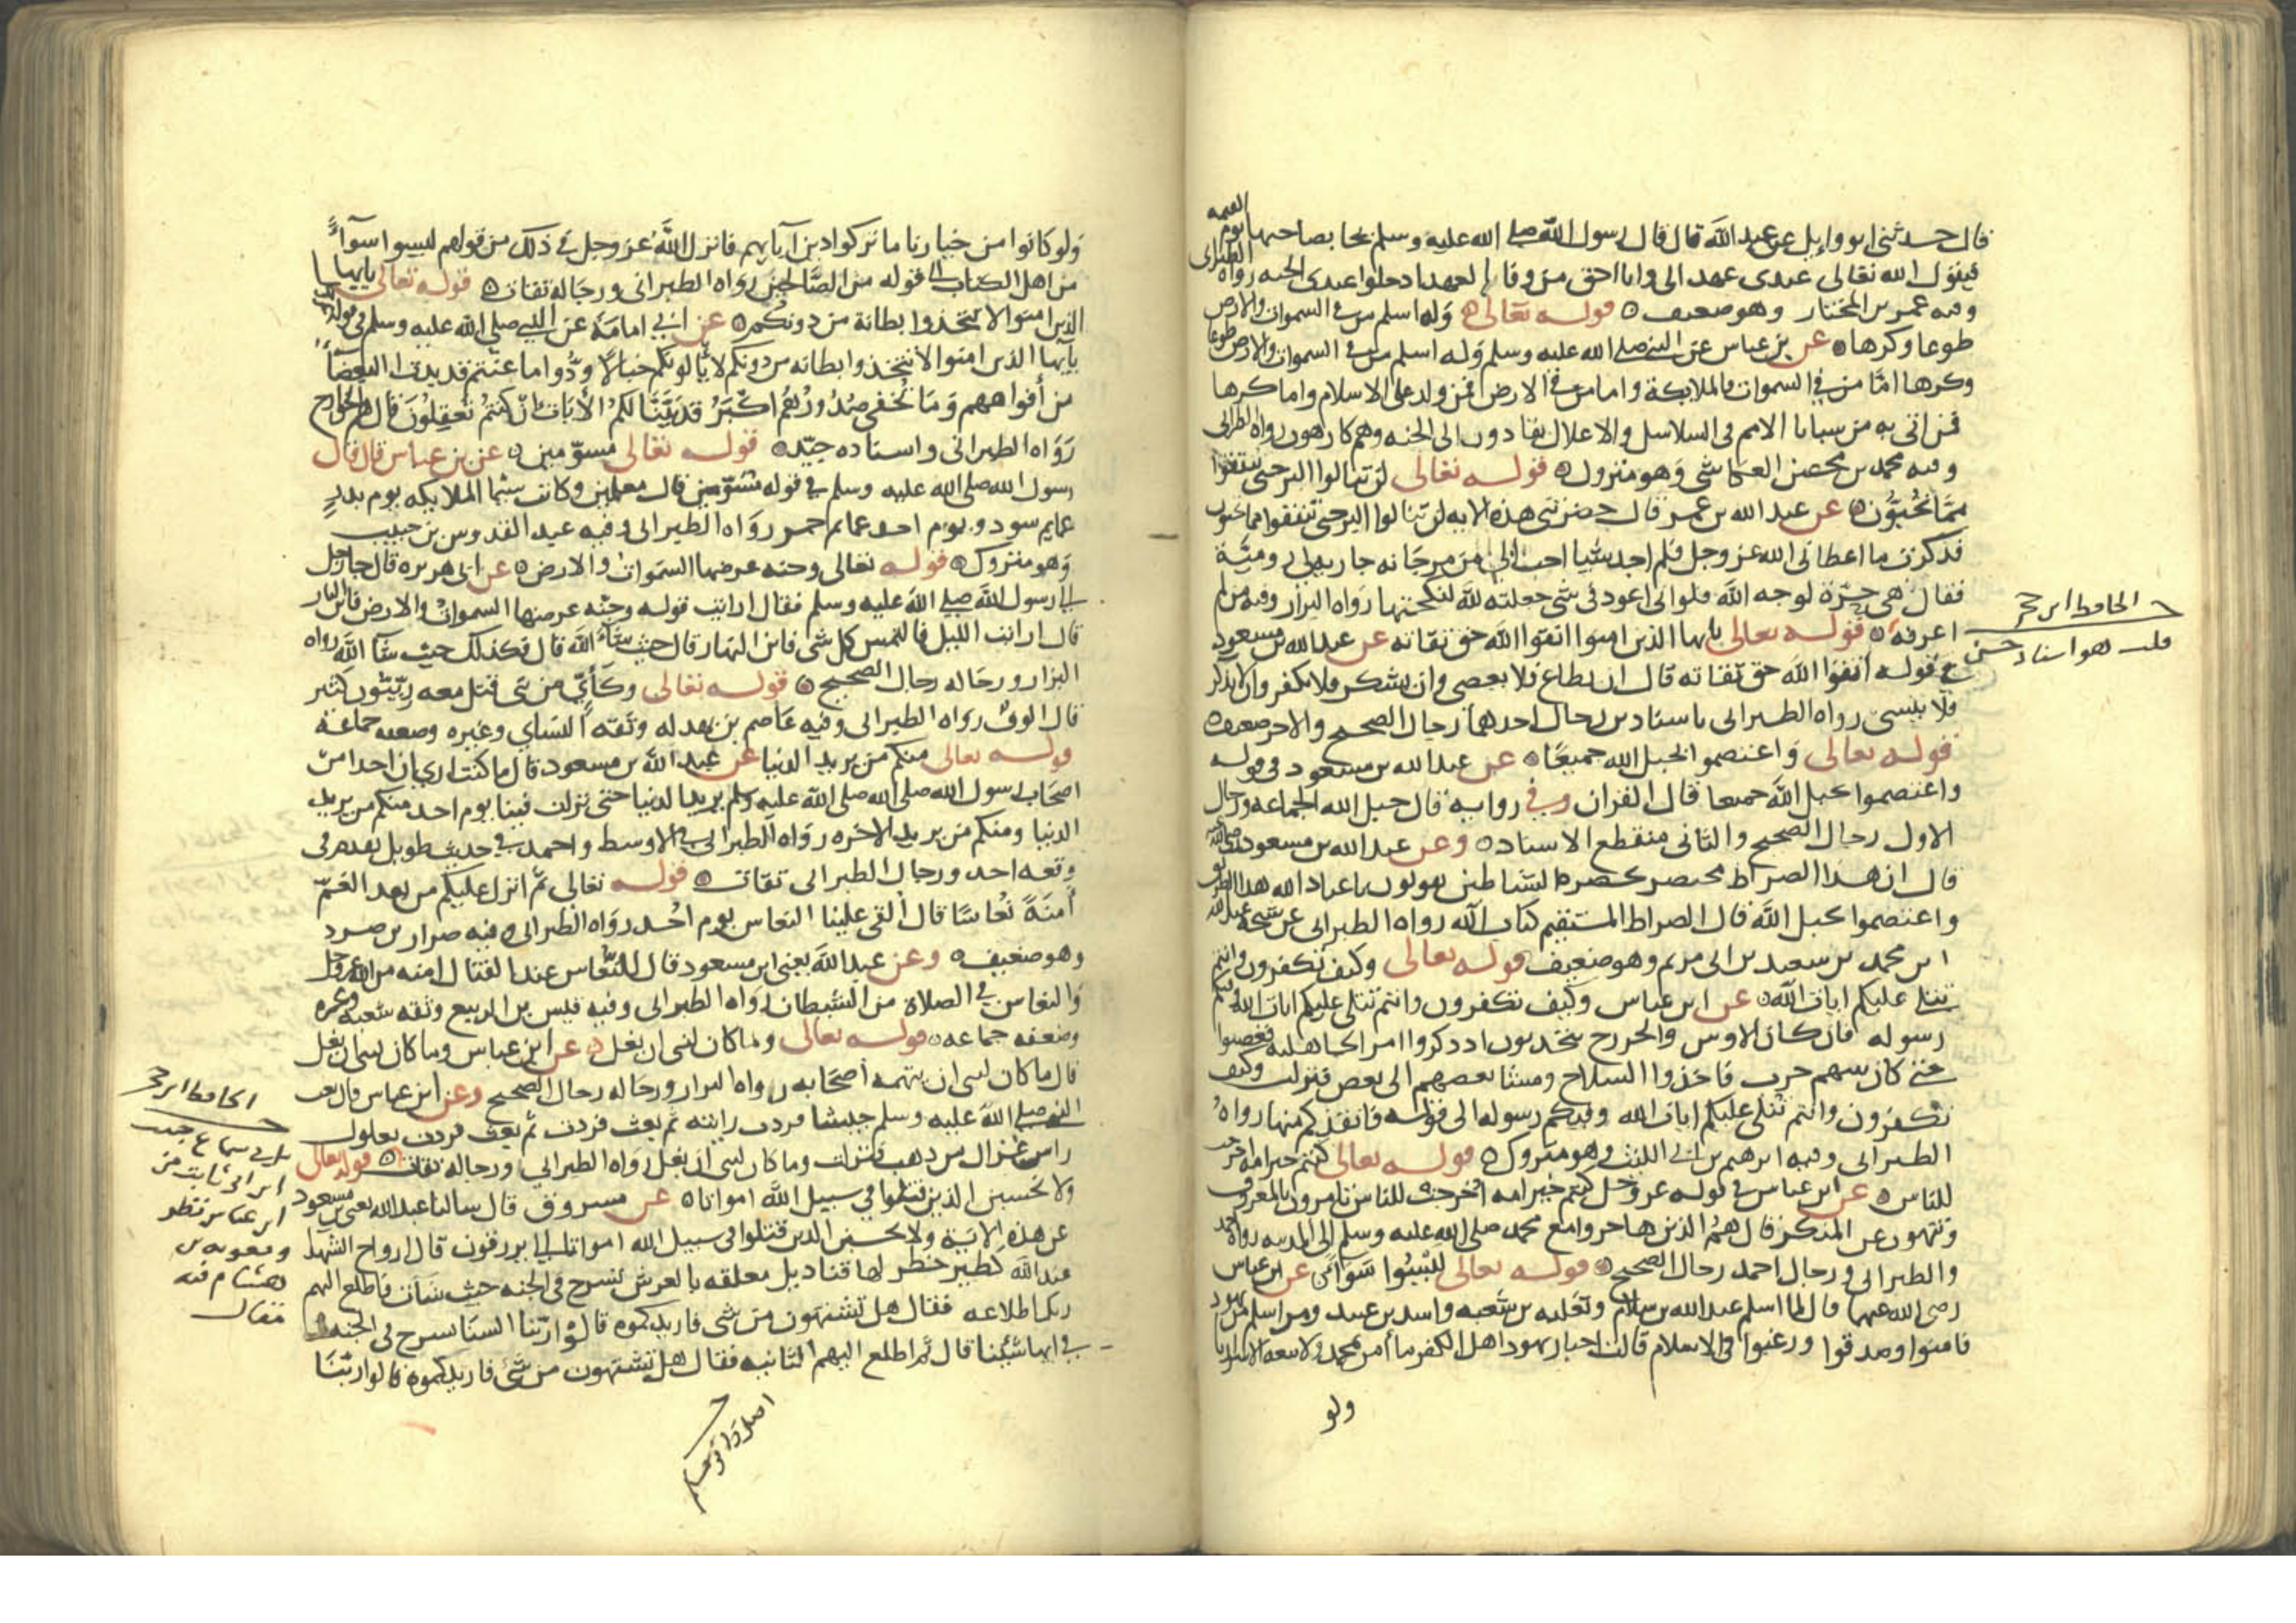 قال حدثني ابو وايل عن عبد الله قال قال رسول الله صلى الله عليه وسلم يجا بصاحبها يوم القيمه
فيقول الله تعالى عبدى عهد الى وانا احق من وفا بالعهد ادخلوا عبدى الجنه رواه الطبرانى
وفيه عمر بن المختار وهو ضعيف ه قوله تعالى ه وله اسلم من في السموات والارض
طوعا وكرها ه عن بن عباس عن النبي صلى الله عليه وسلم وله اسلم من في السموات والارض طوعا
وكرها امّا من في السموات فالملايكة واما من في الارض فمن ولد على الاسلام واما كرها
فمن اتى به من سبايا الامم في السلاسل والاغلال يقادون الى الجنه وهم كارهون رواه الطبرانى
وفيه محمد بن محصن العكاشى وهو متروك ه قوله تعالى لن تنالوا البر حتى تنفقوا
ممّا تحبّون ه عن عبد الله بن عمر قال حضرتنى هذه الايه لن تنالوا البر حتى تنفقوا مما تحبون
فذكرت ما اعطانى الله عز وجل فلم اجد شيا احب الي من مرجانه جاريه لى روميّة
فقال هي حرّة لوجه الله فلو انى اعود في شى جعلته لله لنكحتها رواه البزار وفيه من لم
اعرفه ه قوله تعالى يايها الذين امنوا اتقوا الله حق تقاته عن عبد الله بن مسعود
في قوله اتقوا الله حق تقاته قال ان يطاع فلا يعصى وان يشكر فلا يكفر وان يذكر
فلا ينسى رواه الطبرانى باسنادين رجال احدهما رجال الصحيح والاخر ضعيف ه
قوله تعالى واعتصموا بحبل الله جميعًا ه عن عبد الله بن مسعود في قوله
واعتصموا بحبل الله جميعا قال القران وفي روايه قال حبل الله الجماعه ورجال
الاول رجال الصحيح والثانى منقطع الاسناد ه وعن عبد الله بن مسعود
قال ان هذا الصراط محتضر يحضره الشياطين يقولون يا عباد الله هذا الطريق
واعتصموا بحبل الله قال الصراط المستقيم كتاب الله رواه الطبرانى عن شيخه عبد الله
ابن محمد بن سعيد بن ابى مريم وهو ضعيف قوله تعالى وكيف تكفرون وانتم
تتلى عليكم ايات الله ه عن ابن عباس وكيف تكفرون وانتم تتلى عليكم ايات الله وفيكم
رسوله قال كان الاوس والخزرج يتحدثون اذ ذكروا امر الجاهليه فغضبوا
حتى كان بينهم حرب فاخذوا السلاح ومشا بعضهم الى بعض فنزلت وكيف
تكفرون وانتم تتلى عليكم ايات الله وفيكم رسوله الى قوله فانقذكم منها رواه
الطبرانى وفيه ابرهيم بن ابى الليث وهو متروك ه قوله تعالى كنتم خير امه اخرجت
للناس ه عن ابن عباس في قوله عز وجل كنتم خير امه اخرجت للناس تامرون بالمعروف
وتنهون عن المنكر قال هم الذين هاجروا مع محمد صلى الله عليه وسلم الى المدينه رواه احمد
والطبرانى ورجال احمد رجال الصحيح ه قوله تعالى ليسوا سواءً ه عن ابن عباس
رضى الله عنهما قال لما اسلم عبد الله بن سلام وثعلبه بن شعبه واسد بن عبيد ومن اسلم من يهود
فامنوا وصدقوا ورغبوا في الاسلام قالت احبار يهود اهل الكفر ما امن بمحمد ولا تبعه الا شرارنا
ولو
الحافظ ابن حجر
قلت هو اسناد حسن
ولو كانوا من خيارنا ما تركوا دين آبايهم فانزل الله عز وجل في ذلك من قولهم ليسوا سوآءً
من اهل الكتاب الى قوله من الصّالحين رواه الطبرانى ورجاله ثقات ه قوله تعالى يايها
الذين امنوا لا تتخذوا بطانة من دونكم ه عن ابي امامة عن النبي صلى الله عليه وسلم في قوله
يآيها الذين امنوا لا تتخذوا بطانه من دونكم لا يألونكم خبالا ودّوا ما عنتم قد بدت البغضآ
من أفواههم وما تخفى صدورهم اكبر قد بيّنّا لكم الآيات ان كنتم تعقلون قال هم الخوارج
رواه الطبرانى واسناده جيّد ه قوله تعالى مسوّمين ه عن بن عباس قال قال
رسول الله صلى الله عليه وسلم في قوله مسوّمين قال معلمين وكانت سيما الملايكه يوم بدرٍ
عمايم سود ويوم احد عمايم حمر رواه الطبرانى وفيه عبد القدوس بن حبيب
وهو متروك ه قوله تعالى وجنه عرضها السموات والارض ه عن ابى هريره قال جا رجل
الى رسول الله صلى الله عليه وسلم فقال ارايت قوله وجنّه عرضها السموات والارض فاين النار
قال ارايت الليل فالتمس كل شى فاين النهار قال حيث شآء الله قال فكذلك حيث شا الله رواه
البزار ورجاله رجال الصحيح ه قوله تعالى وكأيّ من نبى قتل معه ربّيّون كثير
قال الوف رواه الطبرانى وفيه عاصم بن بهدله وثقه النساي وغيره وضعفه جماعة
قوله تعالى منكم من يريد الدنيا عن عبد الله بن مسعود قال ما كنت ارى ان احدا من
اصحاب رسول الله صلى الله صلى الله عليه وسلم يريد الدنيا حتى نزلت فينا يوم احد منكم من يريد
الدنيا ومنكم من يريد الاخره رواه الطبرانى في الاوسط واحمد في حديث طويل تقدم في
وقعه احد ورجال الطبرانى ثقات ه قوله تعالى ثم انزل عليكم من بعد الغمّ
أمنةً نعاسًا قال القى علينا النعاس يوم احد رواه الطبرانى وفيه ضرار بن صرد
وهو ضعيف ه وعن عبد الله يعنى ابن مسعود قال النعاس عند القتال امنه من الله عز وجل
والنعاس في الصلاة من الشيطان رواه الطبرانى وفيه قيس بن الربيع وثقه شعبه وغيره
وضعفه جماعه ه قوله تعالى وما كان لنبى ان يغل ه عن ابن عباس وما كان لنبى ان يغل
قال ما كان لنبى ان يتهمه اصحابه رواه البزار ورجاله رجال الصحيح وعن ابن عباس قال بعث
النبى صلى الله عليه وسلم جيشا فردت رايته ثم بعث فردت ثم بعث فردت بغلول
راس غزال من ذهب فنزلت وما كان لنبى ان يغل رواه الطبرانى ورجاله ثقات ه قوله تعالى
ولا تحسبن الذين قتلوا في سبيل الله امواتا ه عن مسروق قال سالنا عبد الله يعنى بن مسعود
عن هذه الاية ولا تحسبن الذين قتلوا في سبيل الله امواتا الى يرزقون قال ارواح الشهدا
عند الله كطير خضر لها قناديل معلقه بالعرش تسرح في الجنه حيث شآت فاطلع اليهم
ربك اطلاعه فقال هل تشتهون من شى فازيدكموه قالوا ربنا السنا نسرح في الجنه
في ايها شئنا قال ثم اطلع اليهم الثانيه فقال هل تشتهون من شئ فازيدكموه قالوا ربّنا
الحافظ ابن حجر
في سماع حبيب
ابن ابى ثابت من
ابن عباس نظر
ومعويه بن
هشام فيه
مقال